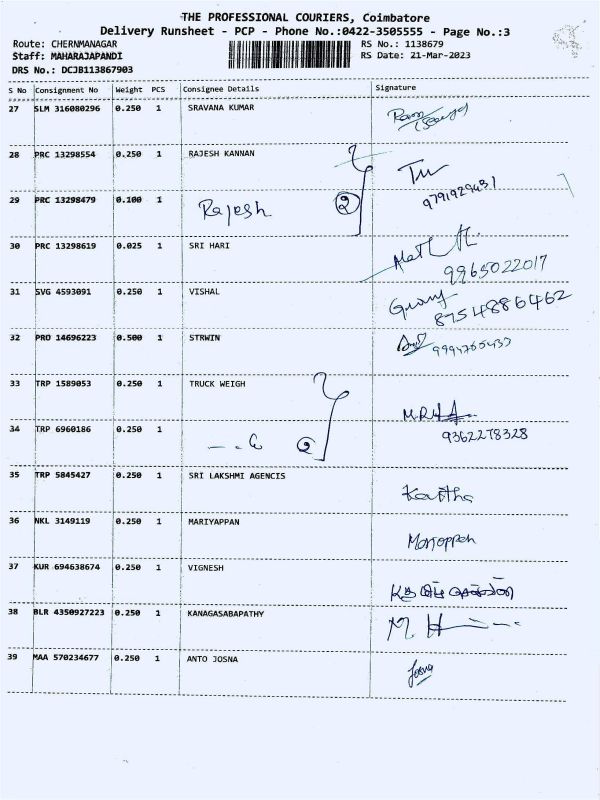 THE PROFESSIONAL COURIERS, Coimbatore
Delivery Runsheet - PCP - Phone No.:0422-3505555 - Page No.:3
Route: CHERNMANAGAR RS No.: 1138679
Staff: MAHARAJAPANDI RS Date: 21-Mar-2023
DRS No.: DCJB113867903
S No Consignment No Weight PCS Consignee Details Signature
27 SLM 316080296 0.250 1 SRAVANA KUMAR
28 PRC 13298554 0.250 1 RAJESH KANNAN
9791929431
29 PRC 13298479 0.100 1 Rajesh 2
30 PRC 13298619 0.025 1 SRI HARI
9965022017
31 SVG 4593091 0.250 1 VISHAL
8754886462
32 PRO 14696223 0.500 1 STRWIN
33 TRP 1589053 0.250 1 TRUCK WEIGH
34 TRP 6960186 0.250 1 2
9362278328
35 TRP 5845427 0.250 1 SRI LAKSHMI AGENCIS
Kavitha
36 NKL 3149119 0.250 1 MARIYAPPAN
Mariappan
37 KUR 694638674 0.250 1 VIGNESH
38 BLR 4350927223 0.250 1 KANAGASABAPATHY
39 MAA 570234677 0.250 1 ANTO JOSNA
Josna